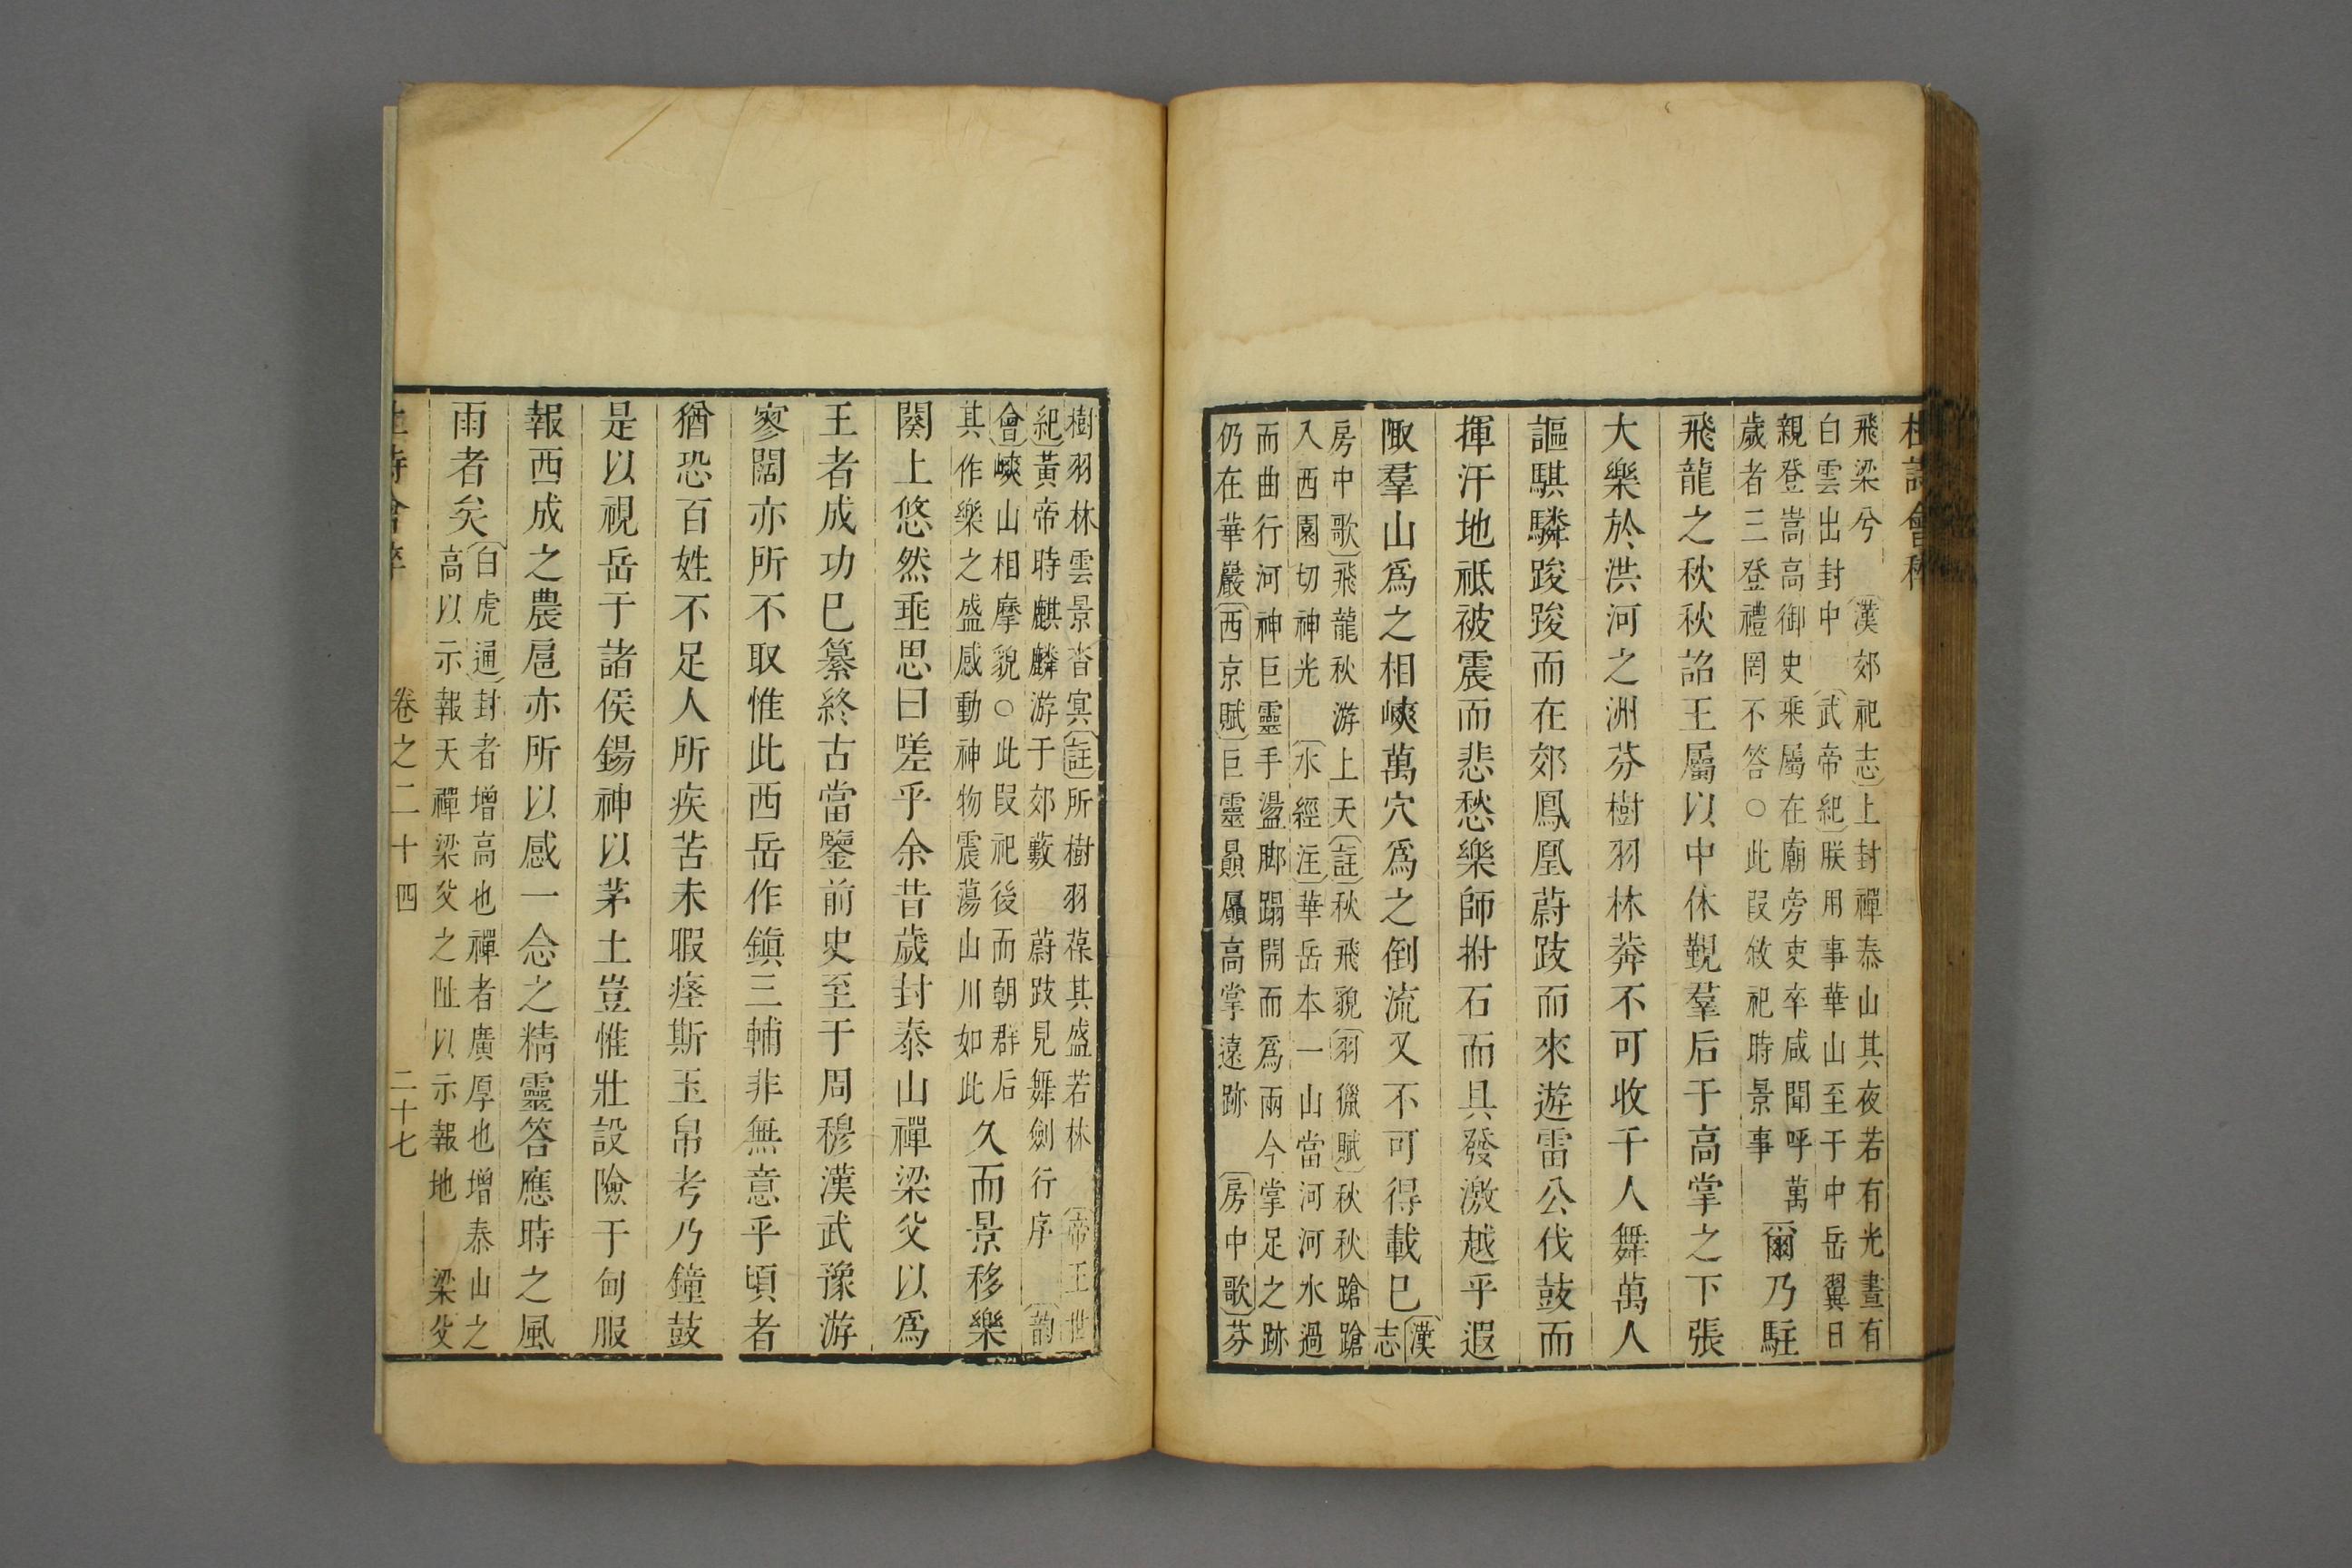 杜詩會稡
飛梁兮　〔漢郊祀志〕上封禪泰山其夜若有光晝有
白雲出封中　〔武帝紀〕朕用事華山至于中岳翼日
親登嵩高御史乘屬在廟旁吏卒咸聞呼萬
歲者三登禮罔不答○此叚敘祀時景事
爾乃駐
飛龍之秋秋詔王屬以中休覲羣后于高掌之下張
大樂於洪河之洲芬樹羽林莽不可收千人舞萬人
謳騏驎踆踆而在郊鳳凰蔚跂而來遊雷公伐鼓而
揮汗地祗被震而悲愁樂師拊石而具發激越乎遐
陬羣山爲之相㟅萬穴爲之倒流又不可得載已
〔漢
志
房中歌〕飛龍秋游上天〔註〕秋飛貌〔羽獵賦〕秋秋蹌蹌
入西園切神光　〔水經注〕華岳本一山當河河水過
而曲行河神巨靈手盪脚蹋開而爲兩今掌足之跡
仍在華嚴〔西京賦〕巨靈贔屭高掌遠跡　〔房中歌〕芬
樹羽林雲景杳冥〔註〕所樹羽葆其盛若林　〔帝王世
紀〕黃帝時麒麟游于郊藪　蔚跂見舞劍行序　〔韵
會〕㟅山相摩貌○此叚祀後而朝群后
其作樂之盛感動神物震蕩山川如此
久而景移樂
闋上悠然垂思曰嗟乎余昔歲封泰山禪梁父以爲
王者成功已纂終古當鑒前史至于周穆漢武豫游
寥闊亦所不取惟此西岳作鎮三輔非無意乎頃者
猶恐百姓不足人所疾苦未暇瘗斯玉帛考乃鐘鼓
是以視岳于諸侯錫神以茅土豈惟壯設險于甸服
報西成之農扈亦所以感一念之精靈答應時之風
雨者矣
〔白虎通〕封者增高也禪者廣厚也增泰山之
高以示報天禪梁父之阯以示報地　梁父
卷之二十四　二十七